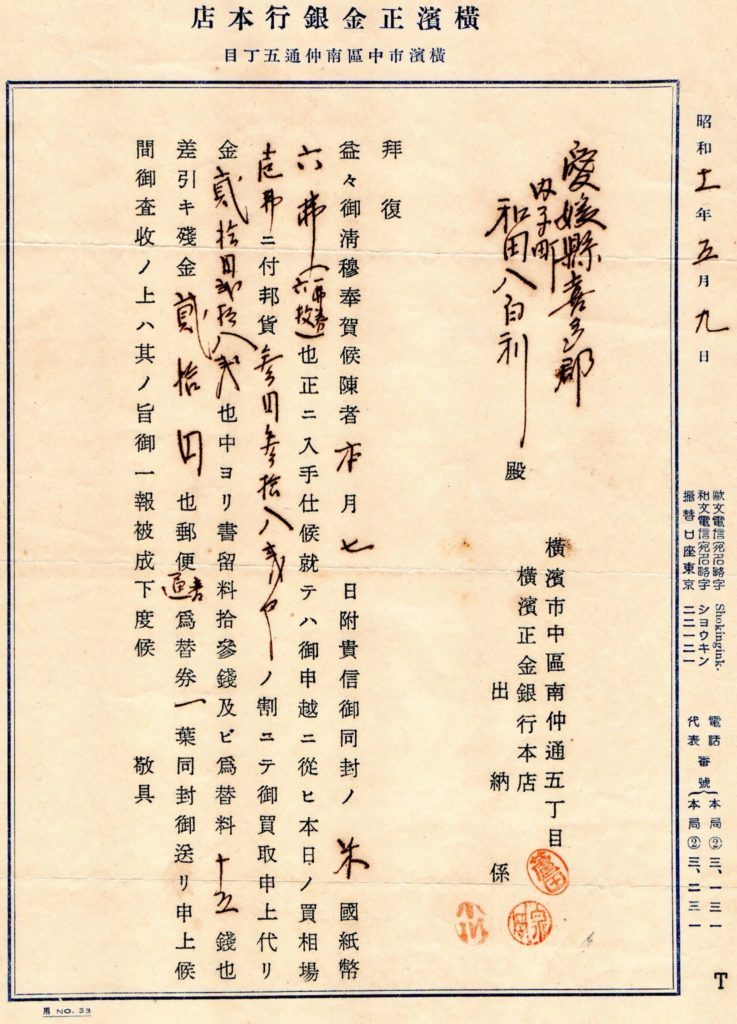 橫濱正金銀行本店
橫濱市中區南仲通五丁目
昭和十一年五月九日
歐文電信宛名略字 Shokingink.
和文電信宛名略字 ショウキン
振替口座東京 二二一二一
電話番號 本局②三、一三一
代表 本局②三、二三一
愛媛縣喜多郡
内子町
和田八百利 殿
橫濱市中區南仲通五丁目
橫濱正金銀行本店
出納係
拜復
益々御淸穆奉賀候陳者本月七日附貴信御同封ノ米國紙幣
六弗(一弗券六枚)也正ニ入手仕候就テハ御申越ニ從ヒ本日ノ買相場
壱弗ニ付邦貨參円參拾八錢ノ割ニテ御買取申上代リ
金貳拾円貳拾八錢也中ヨリ書留料拾參錢及ビ爲替料十五錢也
差引キ殘金貳拾円也郵便爲替券一葉同封御送リ申上候
間御査收ノ上ハ其ノ旨御一報被成下度候
敬具
T
用 NO. 33